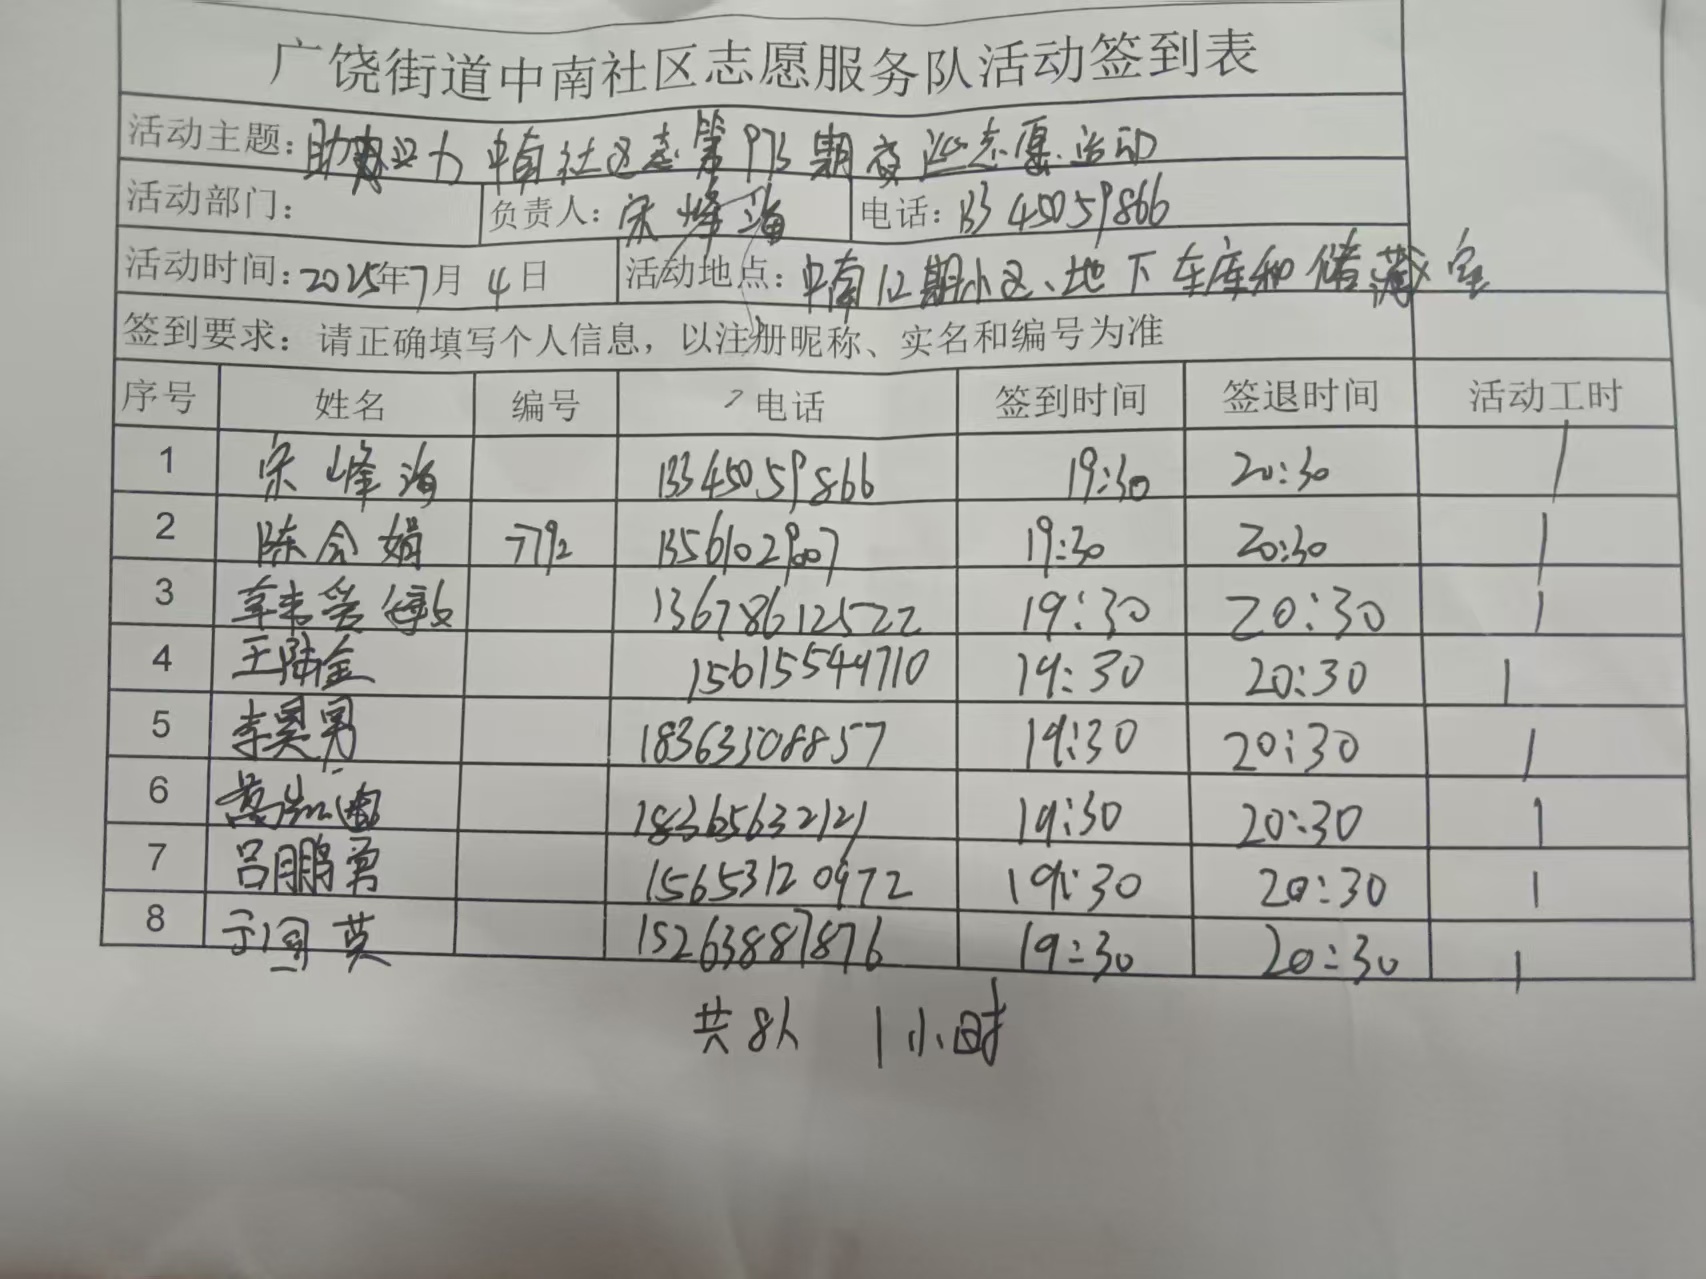 广饶街道中南社区志愿服务队活动签到表
活动主题: 力 中南社区志 第973期夜巡志愿活动
活动部门: 负责人: 宋峰海 电话: 13345059866
活动时间: 2025年7月4日 活动地点: 中南12期小区、地下车库和储藏室
签到要求: 请正确填写个人信息，以注册昵称、实名和编号为准
序号 姓名 编号 电话 签到时间 签退时间 活动工时
1 宋峰海 13345059866 19:30 20:30 1
2 陈会娟 7792 13561029007 19:30 20:30 1
3 13678612522 19:30 20:30 1
4 王陆金 15615544710 19:30 20:30 1
5 李昊男 18363508857 19:30 20:30 1
6 18365632121 19:30 20:30 1
7 吕鹏勇 15653120972 19:30 20:30 1
8 于国英 15263887876 19:30 20:30 1
共8人 1小时